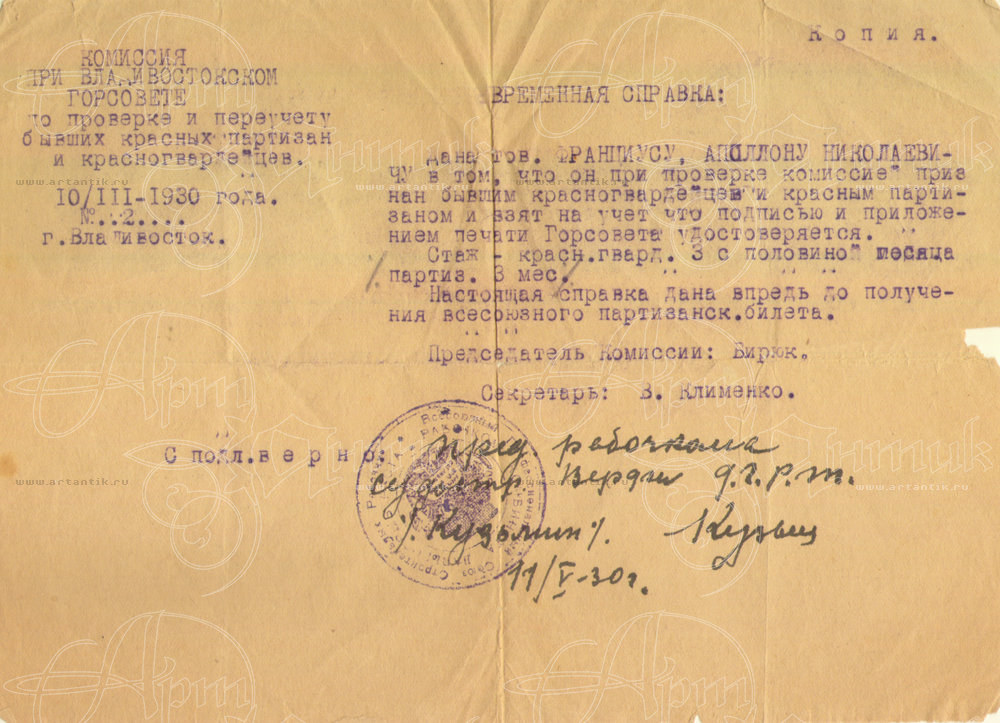 Копия.
КОМИССИЯ
ПРИ ВЛАДИВОСТОКСКОМ
ГОРСОВЕТЕ
по проверке и переучету
бывших красных партизан
и красногвардейцев.
10/III-1930 года.
№..2....
г.Владивосток.
ВРЕМЕННАЯ СПРАВКА:
Дана тов. ФРАНЦИУСУ, АПОЛЛОНУ НИКОЛАЕВИ-
ЧУ в том, что он при проверке комиссией приз
нан бывшим красногвардейцев и красным парти-
заном и взят на учет что подписью и приложе-
нием печати Горсовета удостоверяется.
Стаж - красн.гвард. 3 с половиной месяца
партиз. 3 мес.
Настоящая справка дана впредь до получе-
ния всесоюзного партизанск.билета.
Председатель Комиссии: Бирюк.
Секретарь: В. Клименко.
С подл.верно:
пред. рабочкома
судостр. Верфи
/. Кузьмин /.
11/V-30г.
www.artantik.ru